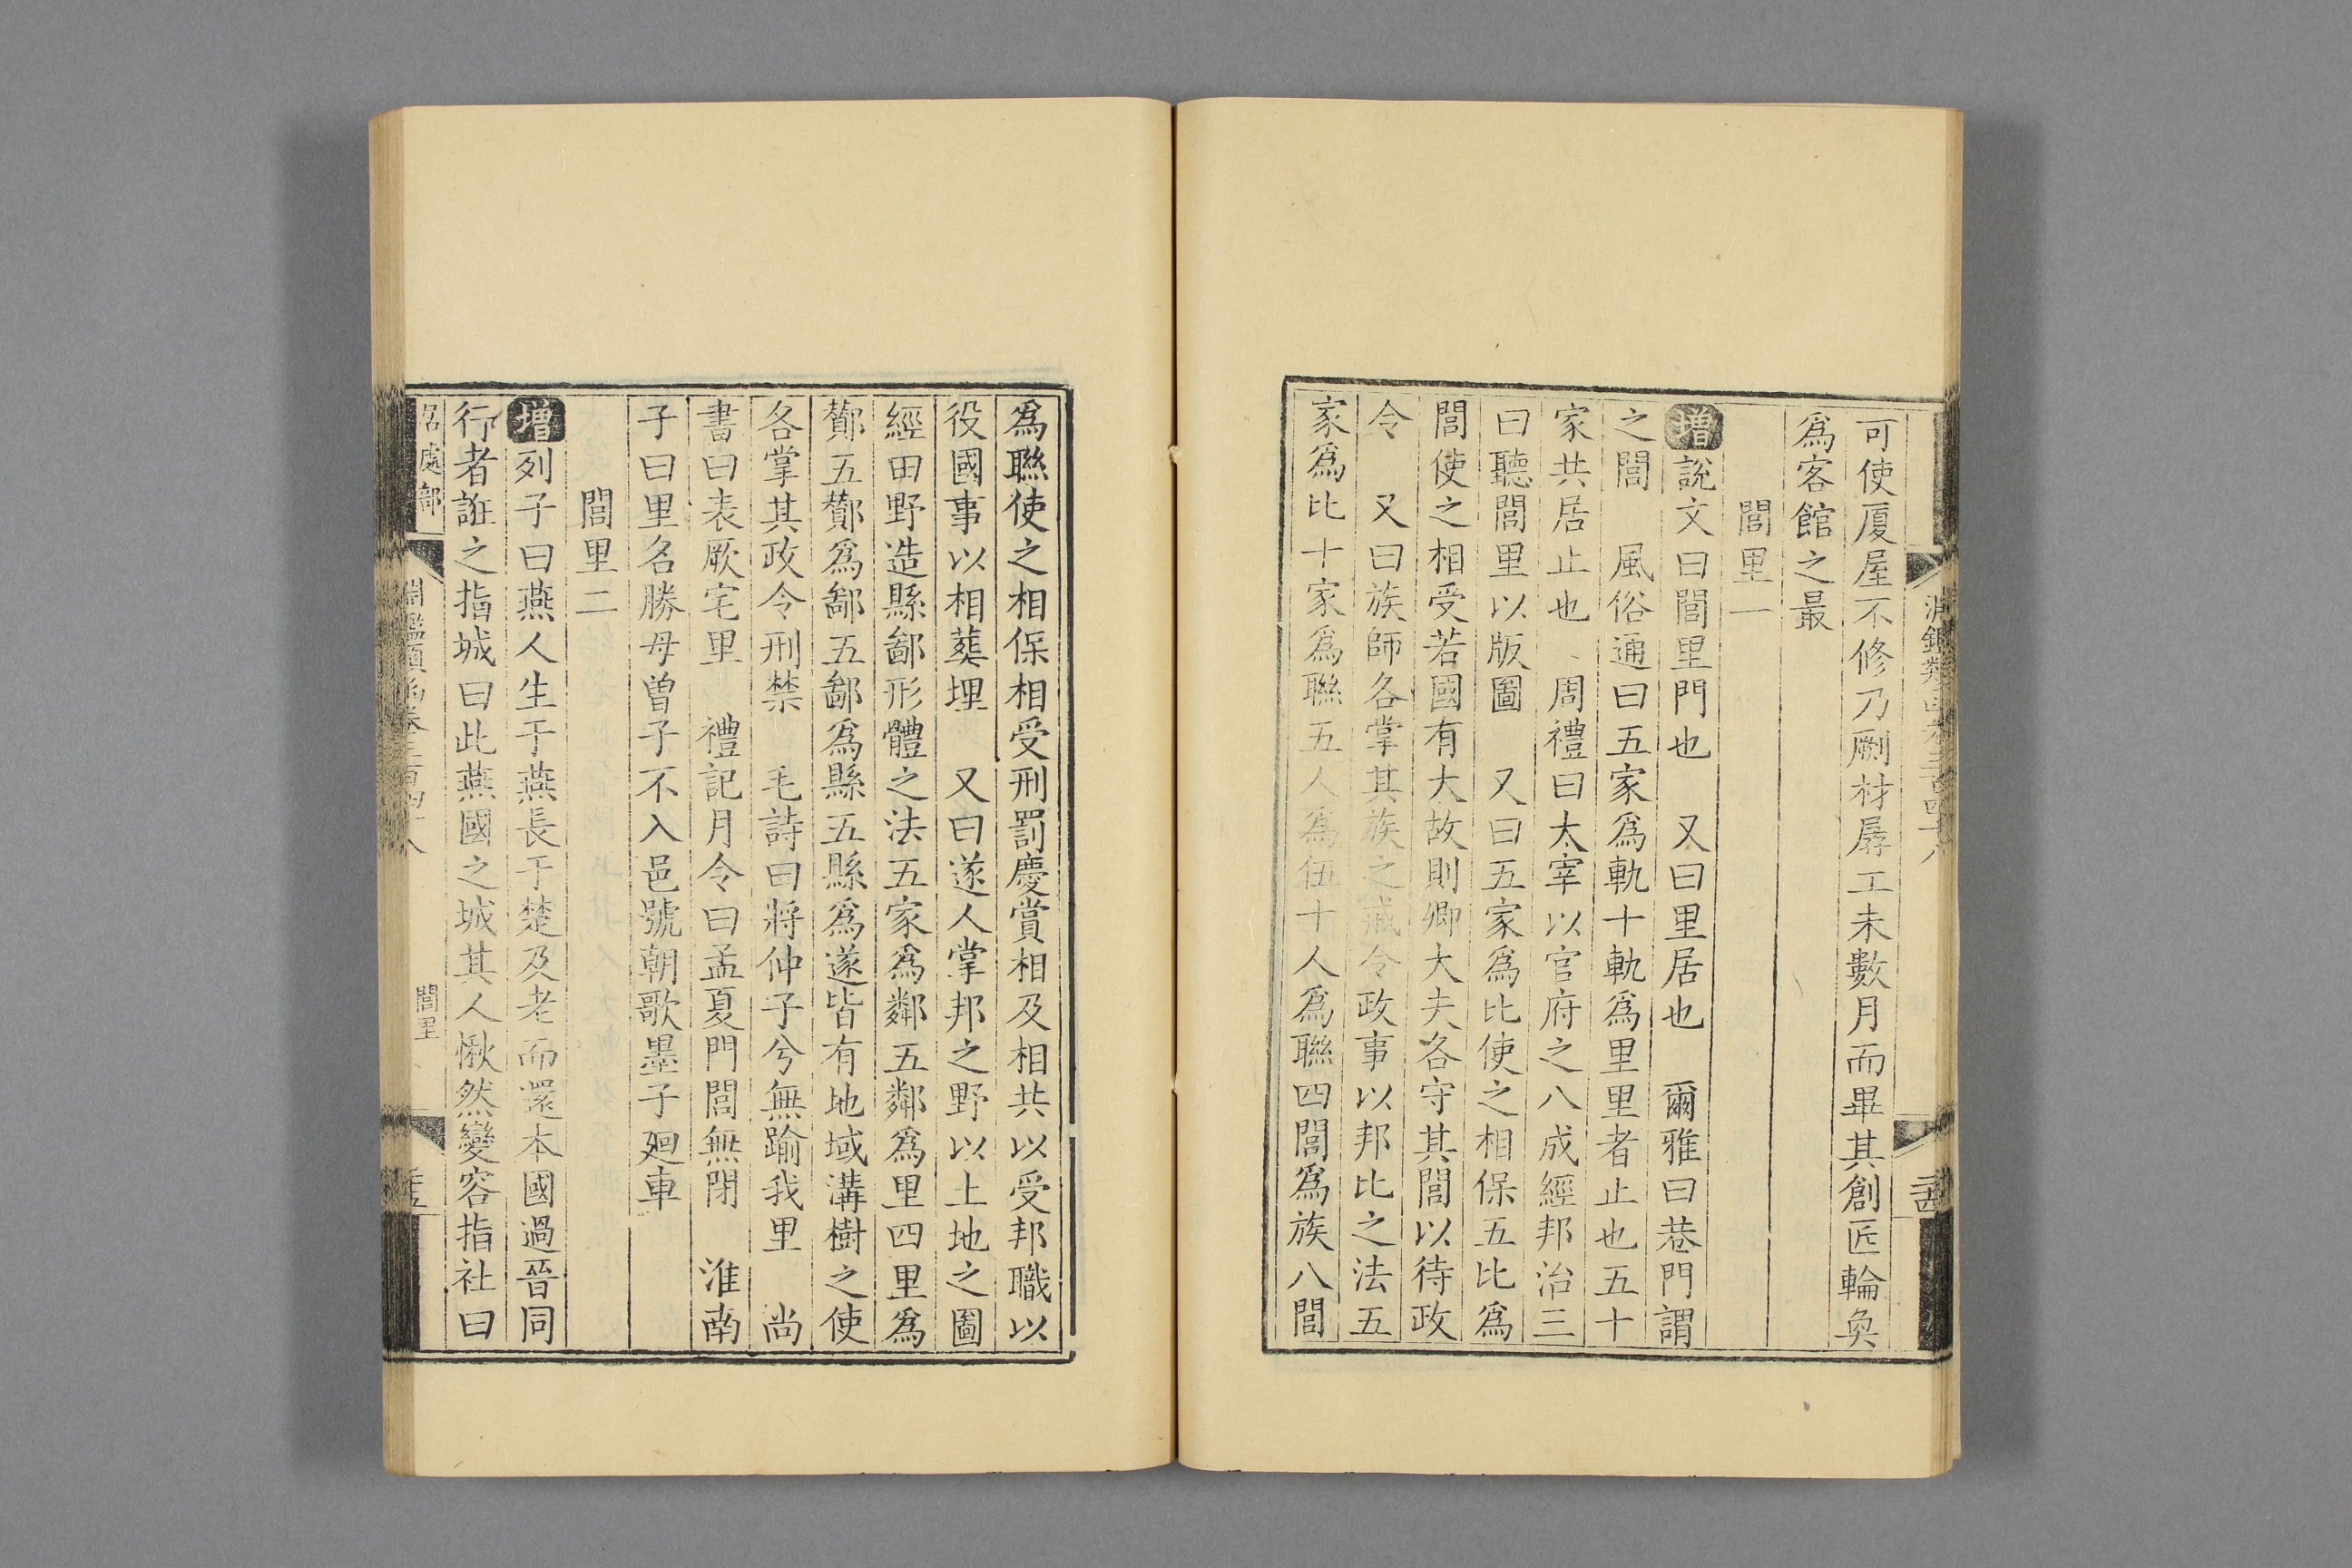 可使厦屋不修乃劂材孱工未數月而畢其創匠輪奐
爲客館之最
閭里一
增說文曰閭里門也　又曰里居也　爾雅曰巷門謂
之閭　風俗通曰五家爲軌十軌爲里里者止也五十
家共居止也　周禮曰太宰以官府之八成經邦治三
曰聽閭里以版圖　又曰五家爲比使之相保五比爲
閭使之相受若國有大故則鄉大夫各守其閭以待政
令　又曰族師各掌其族之戒令政事以邦比之法五
家爲比十家爲聯五人爲伍十人爲聯四閭爲族八閭
爲聯使之相保相受刑罰慶賞相及相共以受邦職以
役國事以相葬埋　又曰遂人掌邦之野以土地之圖
經田野造縣鄙形體之法五家爲鄰五鄰爲里四里爲
酇五酇爲鄙五鄙爲縣五縣爲遂皆有地域溝樹之使
各掌其政令刑禁　毛詩曰將仲子兮無踰我里　尚
書曰表厥宅里　禮記月令曰孟夏門閭無閉　淮南
子曰里名勝母曾子不入邑號朝歌墨子廻車
閭里二
增列子曰燕人生于燕長于楚及老而還本國過晉同
行者誑之指城曰此燕國之城其人愀然變容指社曰
居處部
淵鑑類函卷三百四十八
閭里